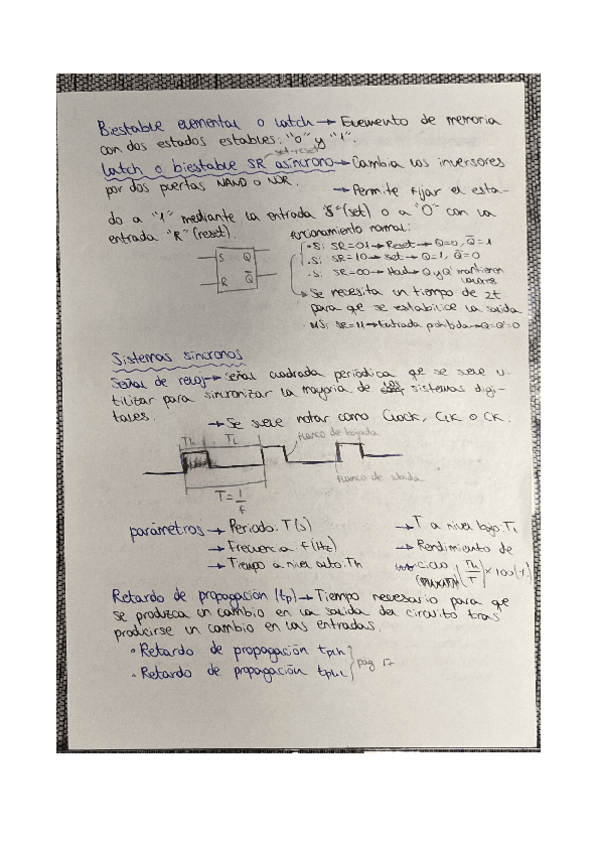 Biestable elemental o latch → Elemento de memoria
con dos estados estables: "0" y "1".
set-reset
Latch o biestable SR asíncrono → Cambia los inversores
por dos puertas NAND o NOR.
→ Permite fijar el esta-
do a "1" mediante la entrada "S" (set) o a "0" con la
entrada "R" (reset).
Funcionamiento normal:
S Q
R Q̅
• Si SR=01 → Reset → Q=0, Q̅=1
• Si SR=10 → Set → Q=1, Q̅=0
• Si SR=00 → Hold → Q y Q̅ mantienen
valores
→ Se necesita un tiempo de 2t
para que se estabilice la salida
SR=11 → Entrada prohibida → Q=Q̅=0
Sistemas síncronos
Señal de reloj → Señal cuadrada periódica que se suele u-
tilizar para sincronizar la mayoría de los sistemas digi-
tales.
→ Se suele notar como Clock, Clk o CK.
Th TL
Flanco de bajada
Flanco de subida
T = 1/f
parámetros → Periodo: T(s)
→ Frecuencia f(Hz)
→ Tiempo a nivel alto: Th
→ T a nivel bajo: TL
→ Rendimiento de
ciclo (Th/T) × 100 (%)
Retardo de propagación (tp) → Tiempo necesario para que
se produzca un cambio en la salida del circuito tras
producirse un cambio en las entradas.
• Retardo de propagación tplh
• Retardo de propagación tphl
pag 17